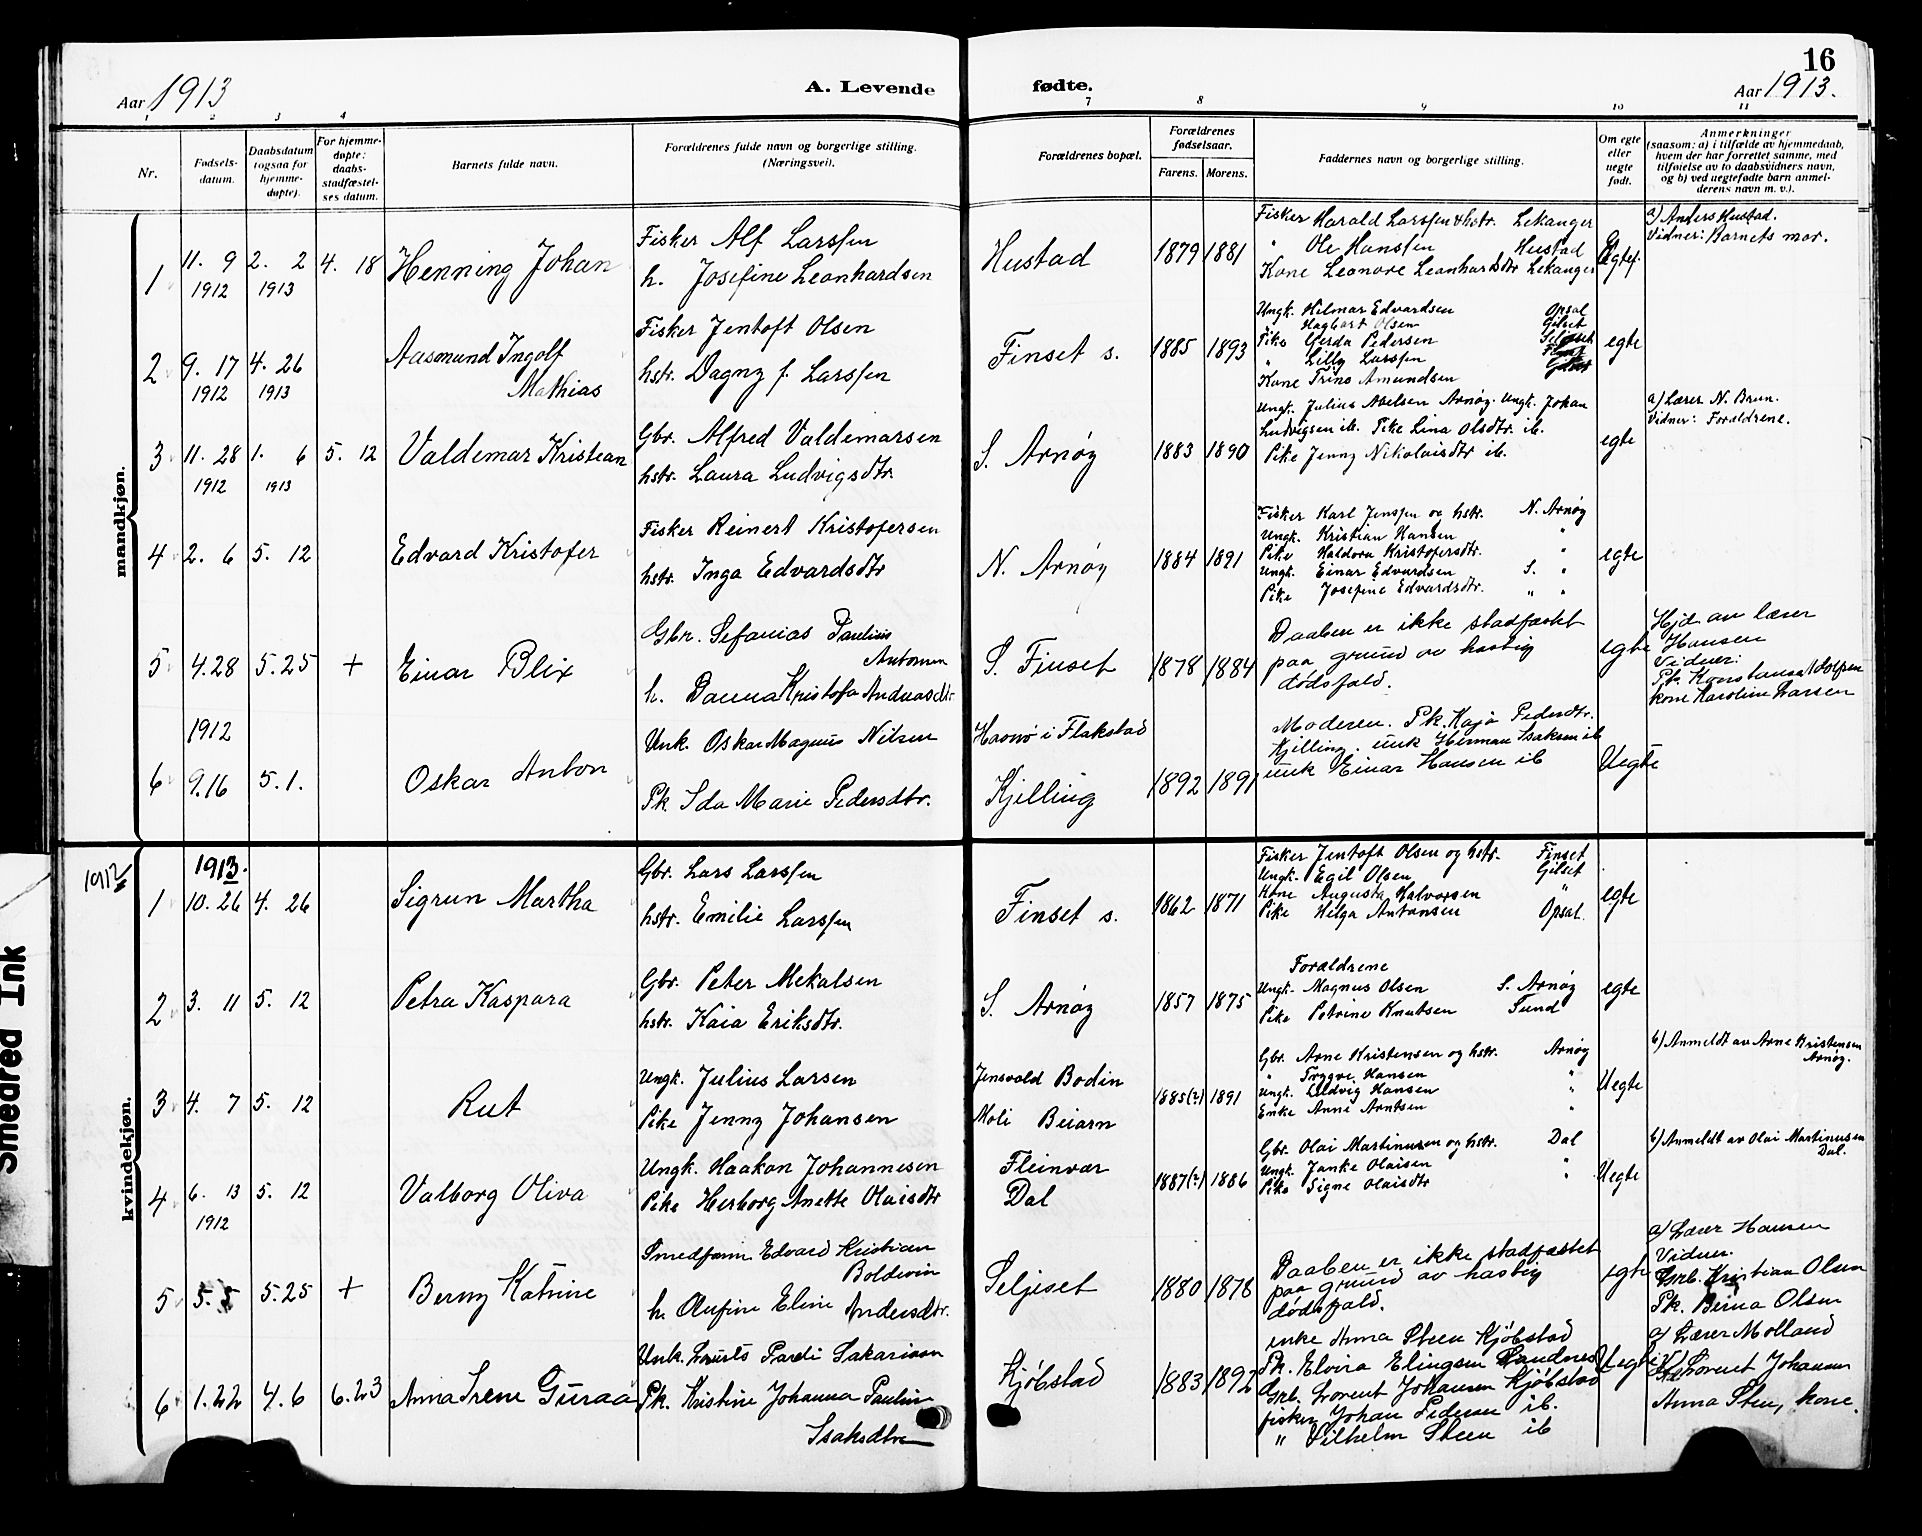 16
Aar 1913
A. Levende fødte.
Aar 1913.
1 2 3 4 7 8 9 10 11
Nr.
Fødsels-
datum.
Daabsdatum
(ogsaa for
hjemme-
døpte).
For hjemme-
døpte:
daabs-
stadfæstel-
ses datum.
Barnets fulde navn.
Forældrenes fulde navn og borgerlige stilling.
(Næringsvei).
Forældrenes bopæl.
Forældrenes
fødselsaar.
Farens. Morens.
Faddernes navn og borgerlige stilling.
Om egte
eller
uegte
født.
Anmerkninger
(saasom: a) i tilfælde av hjemmedaab,
hvem der har forrettet samme, med
tilføielse av to daabsvidners navn,
og b) ved uegtefødte barn anmel-
derens navn m. v.).
mandkjøn.
1 11. 9 2. 2 4. 18 Henning Johan
1912 1913
Fisker Alf Larssen
h. Josefine Leonhardsen
Hustad 1879 1881
Fisker Harald Larssen & hstr. Lekanger
" Ole Hanssen Hustad
Kone Leonore Leonhardsdtr Lekanger
Egtef.
a) Anders Hustad.
Vidner: Barnets mor.
2 9. 17 4. 26 Aasmund Ingolf
1912 1913 Mathias
Fisker Jentoft Olsen
hstr. Dagny f. Larssen
Finset s. 1885 1893
Ungk. Hilmar Edvardsen Opsal
Hagbart Olsen Gilset
Pike Gerda Pedersen
" Lilly Larssen
Kone Trine Amundsen
egte
3 11. 28 1. 6 5. 12 Valdemar Kristian
1912 1913
Gbr. Alfred Valdemarsen
hstr. Laura Ludvigsdtr.
S. Arnøy 1883 1890
Ungk. Julius Abelsen Arnøy. Ungk. Johan
Ludvigsen ib. Pike Lina Olsdtr. ib.
Pike Jenny Nikolaisdtr ib.
egte
a) Lærer N. Brun.
Vidner: Forældrene.
4 2. 6 5. 12 Edvard Kristofer
Fisker Reinert Kristofersen
hstr. Inga Edvardsdtr
N. Arnøy 1884 1891
Fisker Karl Jenssen og hstr. N. Arnøy
Ungk. Kristian Hansen "
Pike Haldora Kristofersdtr. "
Ungk. Einar Edvardsen S. "
Pike Josefine Edvardsdtr. " "
egte
5 4.28 5.25 + Einar Blix
Gbr. Sefanias Paulius
Antonsen
h. Danna Kristofa Andreasdtr
S. Finset 1878 1884
Daaben er ikke stadfæstet
paa grund av hastig
dødsfald.
egte
Hjd av lærer
Hansen
Vidner:
Pk. Konstanse Adolfsen
kone Karoline Larsen
1912
6 9.16 5.1. Oskar Anton
Unk. Oskar Magnus Nilsen
Pk Ida Marie Pedersdtr.
i Flakstad
Kjelling 1892 1891
Moderen. Pk. Kaja Pedersdtr.
Kjelling. unk Herman Isaksen ib
unk Einar Hansen ib
Uegte
kvindekjøn.
1912
1913.
1 10. 26 4. 26 Sigrun Martha
Gbr. Lars Larssen
hstr. Emilie Larssen
Finset s. 1862 1871
Fisker Jentoft Olsen og hstr. Finset
Ungk. Egil Olsen Gilset
Kone Augusta Halvorsen "
Pike Helga Antonsen Opsal.
egte
2 3. 11 5. 12 Petra Kaspara
Gbr. Peter Mekalsen
hstr. Kaia Eriksdtr.
S. Arnøy 1857 1875
Forældrene
Ungk. Magnus Olsen S. Arnøy
Pike Petrine Knutsen Sund
egte
3 4. 7 5. 12 Rut
Ungk. Julius Larsen
Pike Jenny Johansen
Jensvold Bodin
Moli Beiarn
1885(?) 1891
Gbr. Arne Kristensen og hstr. Arnøy
" Trygve Hansen "
Ungk. Ludvig Hansen "
Enke Anne Arntsen "
Uegte
b) Anmeldt av Arne Kristensen
Arnøy.
4 6. 13 5. 12 Valborg Oliva
1912
Ungk. Haakon Johannesen
Pike Herborg Anette Olaisdtr
Fleinvær
Dal
1887(?) 1886
Gbr. Olai Martinusen og hstr. Dal
Ungk. Janke Olaisen "
Pike Signe Olaisdtr "
Uegte
b) Anmeldt av Olai Martinusen
Dal.
5 5.5 5.25 + Berny Katrine
Smedsvenn Edvard Kristian
Boldevin
h. Olufine Eline Andersdtr.
Seljeset 1880 1878
Daaben er ikke stadfæstet
paa grund av hastig
dødsfald.
egte
a) Lærer Hansen
Vidner.
Grb. Kristian Olsen
Pk. Berna Olsen
6 1.22 4.6 6.23 Anna Irene
Unk. Sakarisen
Pk. Kristine Johanna Pauline
Isaksdtr
Kjøbstad 1883 1892
enke Anna Steen Kjøbstad
Pk. Elvira Elingsen Sandnes
Grb. Lorent Johansen Kjøbstad
fisker Johan Pedersen ib.
" Vilhelm Steen ib
Uegte
a) Lærer Molland
Lorent Johansen
Anna Steen, kone.
Smeared Ink